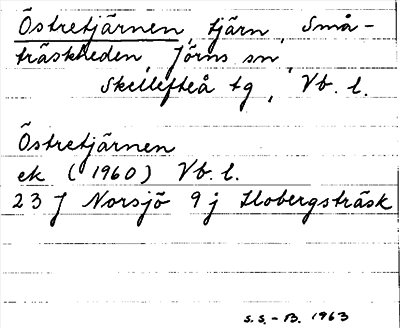 Östretjärnen, tjärn, Små-
träskheden, Jörns sn,
Skellefteå tg, Vb. l.
Östretjärnen
ek (1960) Vb. l.
23 J Norsjö 9 j Flobergsträsk
S.S. - B. 1963